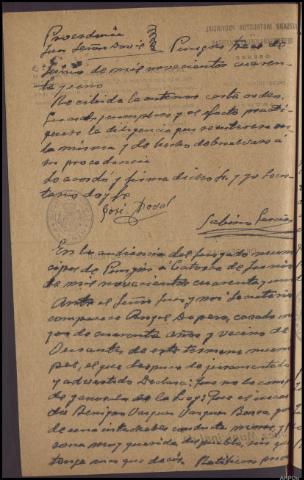 Providencia
Juez Señor Doval Pungín trece de
Junio de mil novecientos cuaren-
ta y uno
Recibida la anterior carta orden,
guarde, cumplase y al efecto practi-
quese la diligencia que se interesa en
la misma y de hecho devuelvase á
su procedencia
Lo acordó y firma dicho Sr y yo Secre-
tario doy fé
José Doval
Sabino García
En la audiencia del Juzgado muni-
cipal de Pungín á Catorce de Junio
de mil novecientos cuarenta y uno
Ante el Señor Juez y mi Secretario
comparece Angel Dapero, casado ma-
yor de cuarenta años y vecino de
de este termino munici-
pal, el que despues de juramentado
y advertido Declara: Que no le comp
de generales de la Ley: Que el vecino
dio Benigno Vazquez Vazquez
de una intachable conducta moral y
sona muy querida del pueblo, sin que
tenga mas que decir. Ratifica